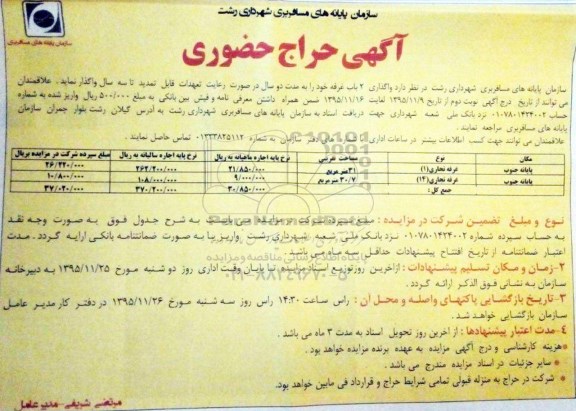 سازمان پایانه های مسافربری شهرداری رشت
سازمان پایانه های مسافربری
آگهی حراج حضوری
سازمان پایانه های مسافربری شهرداری رشت در نظر دارد واگذاری ۲ باب غرفه خود را به مدت دو سال در صورت رعایت تعهدات قابل تمدید تا سه سال واگذار نماید. علاقمندان
می توانند از تاریخ درج آگهی نوبت دوم از تاریخ ۱۳۹۵/۱۱/۹ لغایت ۱۳۹۵/۱۱/۱۶ ضمن همراه داشتن معرفی نامه و فیش بین بانکی به مبلغ ۵۰۰/۰۰۰ ریال واریز شده به شماره
حساب ۰۱۰۷۸۰۱۴۲۴۰۰۲ نزد بانک ملی شعبه شهرداری جهت دریافت اسناد به سازمان پایانه های مسافربری شهرداری رشت به آدرس گیلان رشت بلوار چمران سازمان
پایانه های مسافربری مراجعه نمایند.
علاقمندان می توانند جهت کسب اطلاعات بیشتر در ساعات اداری سازمان به شماره ۰۱۳۳۳۸۲۵۱۱۲ تماس حاصل نمایند.
مکان نوع مساحت تقریبی نرخ پایه اجاره ماهیانه به ریال نرخ پایه اجاره سالیانه به ریال مبلغ سپرده شرکت در مزایده بریال
پایانه جنوب غرفه تجاری(۱) ۳۱ متر مربع ۲۱/۸۵۰/۰۰۰ ۲۶۲/۲۰۰/۰۰۰ ۲۶/۲۲۰/۰۰۰
پایانه جنوب غرفه تجاری(۱۲) ۳۰/۷ متر مربع ۹/۰۰۰/۰۰۰ ۱۰۸/۰۰۰/۰۰۰ ۱۰/۸۰۰/۰۰۰
جمع کل: ۳۰/۸۵۰/۰۰۰ ۳۷۰/۲۰۰/۰۰۰ ۳۷/۰۲۰/۰۰۰
نوع و مبلغ تضمین شرکت در مزایده: مبلغ سپرده شرکت در مزایده می بایست به شرح جدول فوق به صورت وجه نقد
به حساب سپرده شماره ۰۱۰۷۸۰۱۴۲۴۰۰۲ نزد بانک ملی شعبه شهرداری رشت واریز یا به صورت ضمانتنامه بانکی ارایه گردد. مدت
اعتبار ضمانتنامه از تاریخ افتتاح پیشنهادات حداقل می باشد
۲-زمان و مکان تسلیم پیشنهادات: از اخرین روز توزیع اسناد مزایده تا پایان وقت اداری روز دو شنبه مورخ ۱۳۹۵/۱۱/۲۵ به دبیرخانه
سازمان به نشانی فوق الذکر ارائه گردد.
۳-تاریخ بازگشایی پاکتهای واصله و محل آن: راس ساعت ۱۴:۳۰ راس روز سه شنبه مورخ ۱۳۹۵/۱۱/۲۶ در دفتر کار مدیر عامل
سازمان بازگشایی خواهد شد.
۴-مدت اعتبار پیشنهادها: از اخرین روز تحویل اسناد به مدت ۳ ماه می باشد.
*هزینه کارشناسی و درج آگهی مزایده به عهده برنده مزایده خواهد بود.
* سایر جزئیات در اسناد مزایده مندرج می باشد.
* شرکت در حراج به منزله قبولی تمامی شرایط حراج و قرارداد فی مابین خواهد بود.
مرتضی شریفی-مدیر عامل